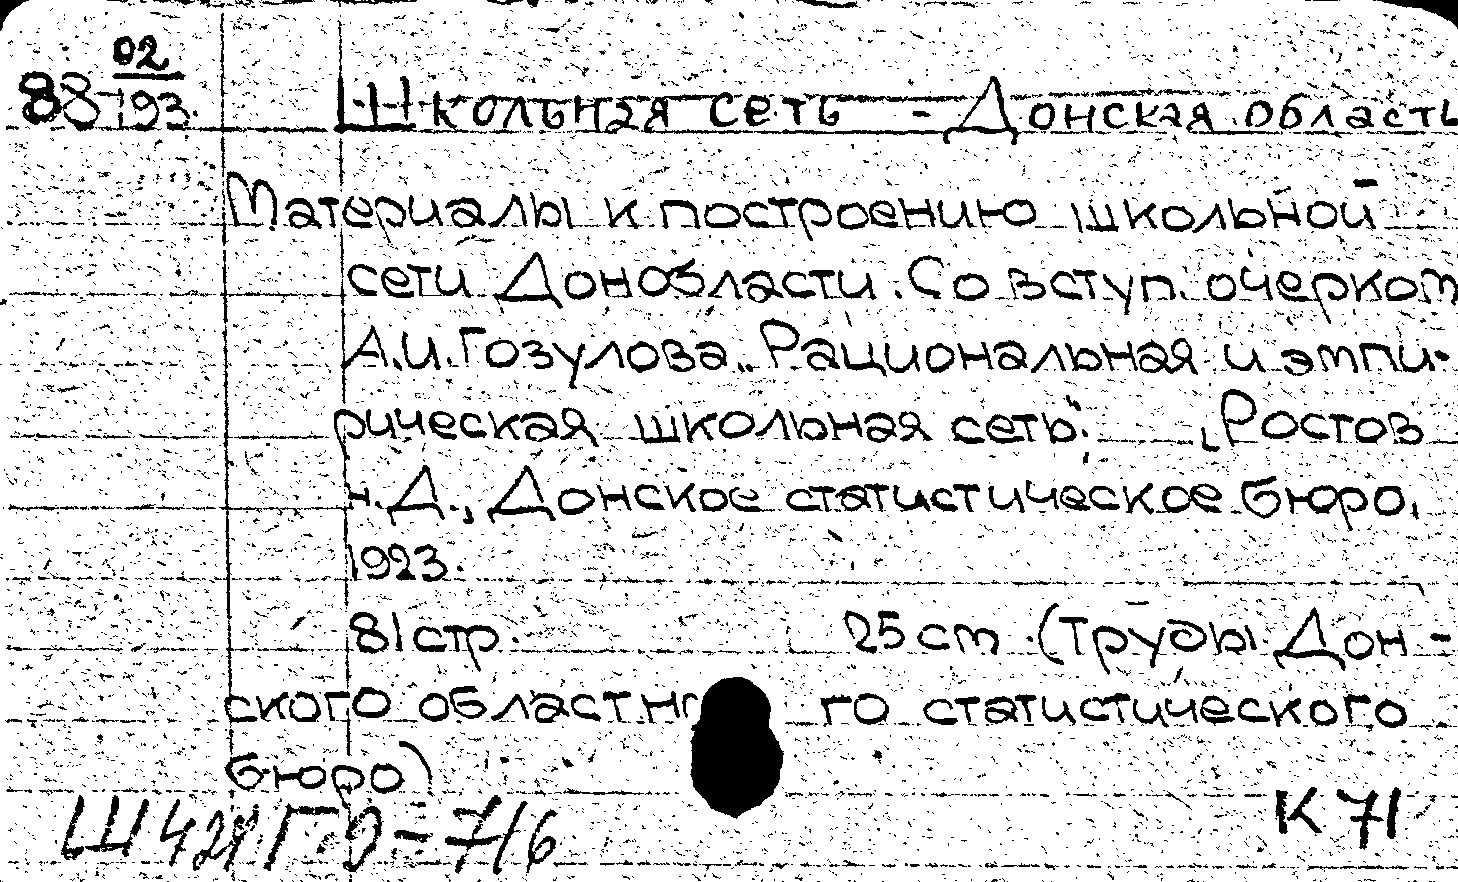 02
88 193.
Школьная сеть - Донская область
Материалы к построению школьной
сети Донобласти. Со вступ. очерком
А.И. Гозулова. „Рациональная и эмпи-
рическая школьная сеть“. Ростов
н.Д., Донское статистическое бюро,
1923.
81 стр. 25 см. (Труды Дон-
ского областного статистического
бюро)
К 71